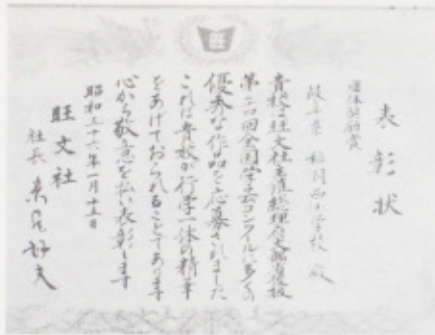 表彰状
団体努力賞
岐阜県 稲羽西小学校 殿
貴校は旺文社主催総理府文部省後援
第二四回全国学芸コンクールに多くの
優秀な作品を応募されました
これは貴校が行学一体の精華
をあげておられることであります
心から敬意を払い表彰します
昭和三十六年一月十五日
旺文社
社長 赤尾好夫
旺